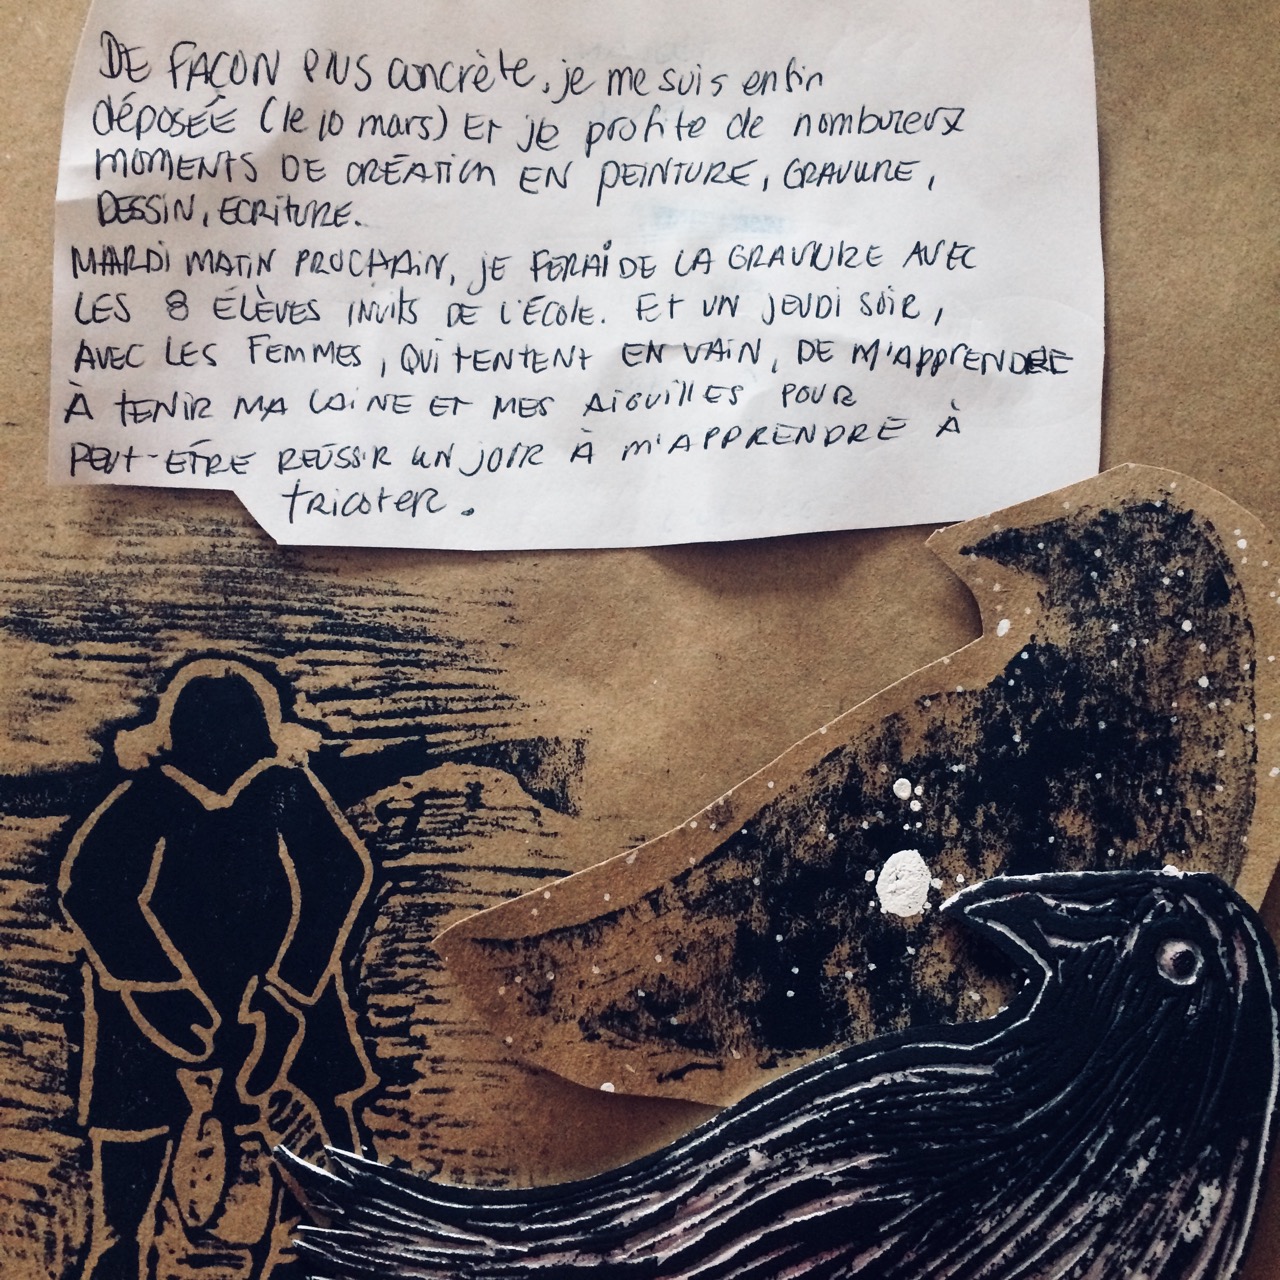 DE FAÇON PLUS concrète, je me suis enfin
DÉPOSÉE (le 10 mars) Et je profite de nombureux
MOMENTS DE CRÉATION EN PEINTURE, GRAVURE,
DESSIN, ECRITURE.
MARDI MATIN PROCHAIN, JE FERAI DE LA GRAVURE AVEC
LES 8 ÉLÈVES INUITS DE L'ÉCOLE. Et UN JEUDI SOIR,
AVEC LES FEMMES, QUI TENTENT EN VAIN, DE M'APPRENDRE
À TENIR MA LAINE ET MES AIGUILLES POUR
PEUT-ETRE REUSSIR UN JOUR À M'APPRENDRE À
TRICOTER.